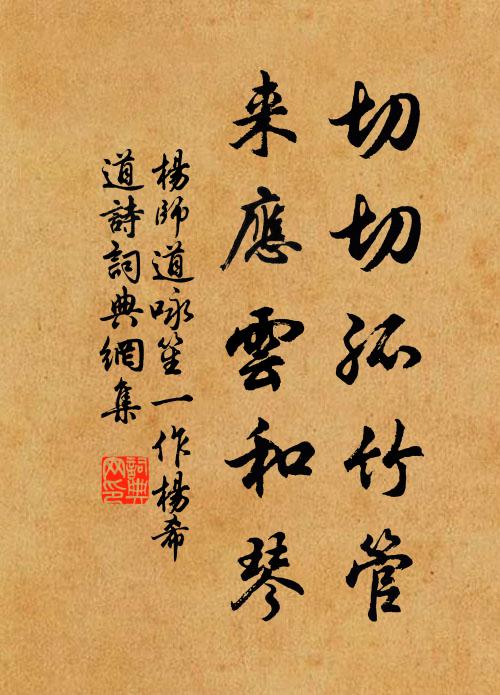 切切孤竹管
来應雲和琴
楊師道咏笙一作楊希
道詩詞典網集
詞典网印